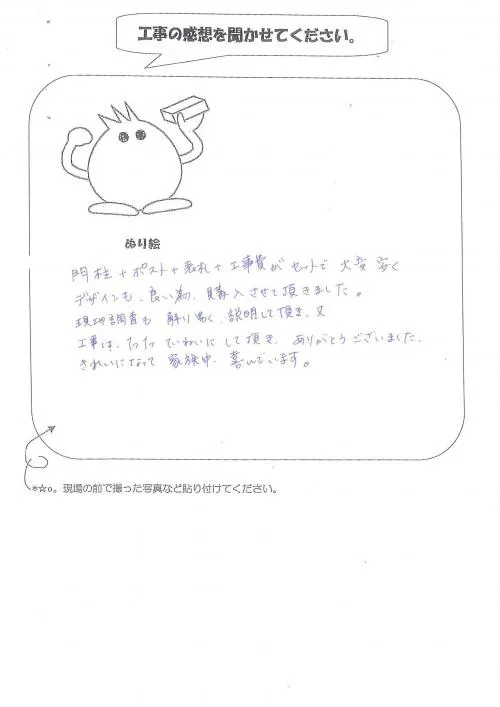 工事の感想を聞かせてください。
ぬり絵
門柱+ポスト+表札+工事費がセットで 大変 安く
デザインも、良い為、購入させて頂きました。
現地調査も 解り易く、説明して頂き、又
工事は、 ていねいに して頂き、ありがとうございました。
きれいになって 家族中、喜んでいます。
*☆o。現場の前で撮った写真など貼り付けてください。